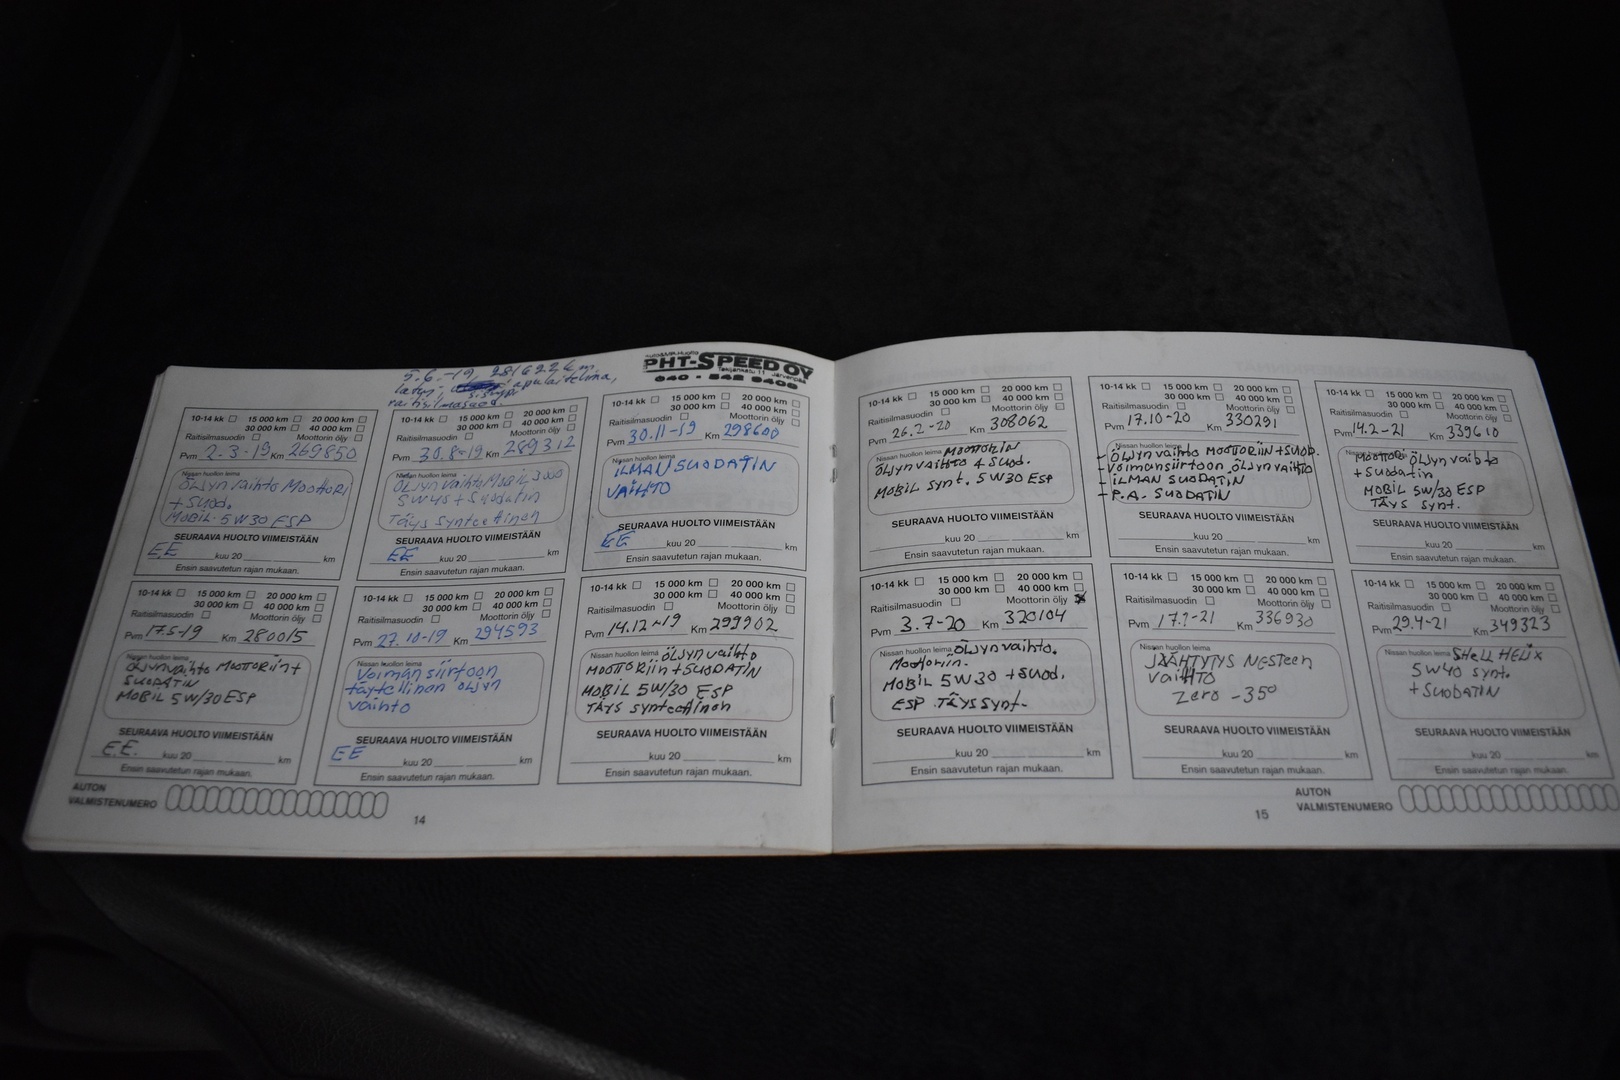 5.6.-19, 281622 km,
apulaitehihna,
raitisilmasuod.
Auto&MP-Huolto
PHT-SPEED OY
Järvenpää
040 - 542 6400
10-14 kk 15 000 km 20 000 km
30 000 km 40 000 km
Raitisilmasuodin Moottorin öljy
Pvm 2.3.19 Km 269850
Nissan huollon leima
ÖLJyn vaihto MOOTTORI
+ Suod.
MOBIL-5W30 ESP
SEURAAVA HUOLTO VIIMEISTÄÄN
EE kuu 20 km
Ensin saavutetun rajan mukaan.
10-14 kk 15 000 km 20 000 km
30 000 km 40 000 km
Raitisilmasuodin Moottorin öljy
Pvm 30.8-19 Km 289312
Nissan huollon leima
ÖLJyn vaihto Mobil 3000
5W45 + Suodatin
Täys synteettinen
SEURAAVA HUOLTO VIIMEISTÄÄN
EE kuu 20 km
Ensin saavutetun rajan mukaan.
10-14 kk 15 000 km 20 000 km
30 000 km 40 000 km
Raitisilmasuodin Moottorin öljy
Pvm 30.11-19 Km 298600
Nissan huollon leima
ILMAN SUODATIN
VAIHTO
SEURAAVA HUOLTO VIIMEISTÄÄN
EE kuu 20 km
Ensin saavutetun rajan mukaan.
10-14 kk 15 000 km 20 000 km
30 000 km 40 000 km
Raitisilmasuodin Moottorin öljy
Pvm 17.5-19 Km 280015
Nissan huollon leima
Öljynvaihto MOOTTORiin+
SUODATIN
MOBIL 5W/30 ESP
SEURAAVA HUOLTO VIIMEISTÄÄN
E.E. kuu 20 km
Ensin saavutetun rajan mukaan.
10-14 kk 15 000 km 20 000 km
30 000 km 40 000 km
Raitisilmasuodin Moottorin öljy
Pvm 27.10-19 Km 294593
Nissan huollon leima
Voiman siirtoon
täytellinen öljyn
vaihto
SEURAAVA HUOLTO VIIMEISTÄÄN
EE kuu 20 km
Ensin saavutetun rajan mukaan.
10-14 kk 15 000 km 20 000 km
30 000 km 40 000 km
Raitisilmasuodin Moottorin öljy
Pvm 14.12-19 Km 299902
Nissan huollon leima ÖLJyn vaihto
MOOTTORiin + SUODATIN
MOBIL 5W/30 ESP
TÄYS synteettinen
SEURAAVA HUOLTO VIIMEISTÄÄN
kuu 20 km
Ensin saavutetun rajan mukaan.
AUTON
VALMISTENUMERO
14
10-14 kk 15 000 km 20 000 km
30 000 km 40 000 km
Raitisilmasuodin Moottorin öljy
Pvm 26.2-20 Km 308062
Nissan huollon leima MOOTTORIN
Öljyn vaihto & Suod.
MOBIL Synt. 5W30 ESP
SEURAAVA HUOLTO VIIMEISTÄÄN
kuu 20 km
Ensin saavutetun rajan mukaan.
10-14 kk 15 000 km 20 000 km
30 000 km 40 000 km
Raitisilmasuodin Moottorin öljy
Pvm 17.10-20 Km 330291
Nissan huollon leima
- ÖLJyn vaihto MOOTTORiiN+SUOD.
- Voimansiirtoon öljyn vaihto
- iLMAN SUODATIN
- P.A. SUODATIN
SEURAAVA HUOLTO VIIMEISTÄÄN
kuu 20 km
Ensin saavutetun rajan mukaan.
10-14 kk 15 000 km 20 000 km
30 000 km 40 000 km
Raitisilmasuodin Moottorin öljy
Pvm 14.2-21 Km 339610
MOOTTORi Öljyn vaihto
+ Suodatin
MOBIL 5W/30 ESP
TÄYS Synt.
SEURAAVA HUOLTO VIIMEISTÄÄN
kuu 20 km
Ensin saavutetun rajan mukaan.
10-14 kk 15 000 km 20 000 km
30 000 km 40 000 km
Raitisilmasuodin Moottorin öljy x
Pvm 3.7-20 Km 320104
Nissan huollon leima Öljyn vaihto.
Moottoriin.
MOBIL 5W30 + Suod.
ESP TÄYS Synt.
SEURAAVA HUOLTO VIIMEISTÄÄN
kuu 20 km
Ensin saavutetun rajan mukaan.
10-14 kk 15 000 km 20 000 km
30 000 km 40 000 km
Raitisilmasuodin Moottorin öljy
Pvm 17.1-21 Km 336930
Nissan huollon leima
JÄÄHTYTYS NESTEEN
VAIHTO
Zero -35°
SEURAAVA HUOLTO VIIMEISTÄÄN
kuu 20 km
Ensin saavutetun rajan mukaan.
10-14 kk 15 000 km 20 000 km
30 000 km 40 000 km
Raitisilmasuodin Moottorin öljy
Pvm 29.4-21 Km 349323
Nissan huollon leima SHELL HELIX
5W40 synt.
+ SUODATIN
SEURAAVA HUOLTO VIIMEISTÄÄN
kuu 20 km
Ensin saavutetun rajan mukaan.
15
AUTON
VALMISTENUMERO